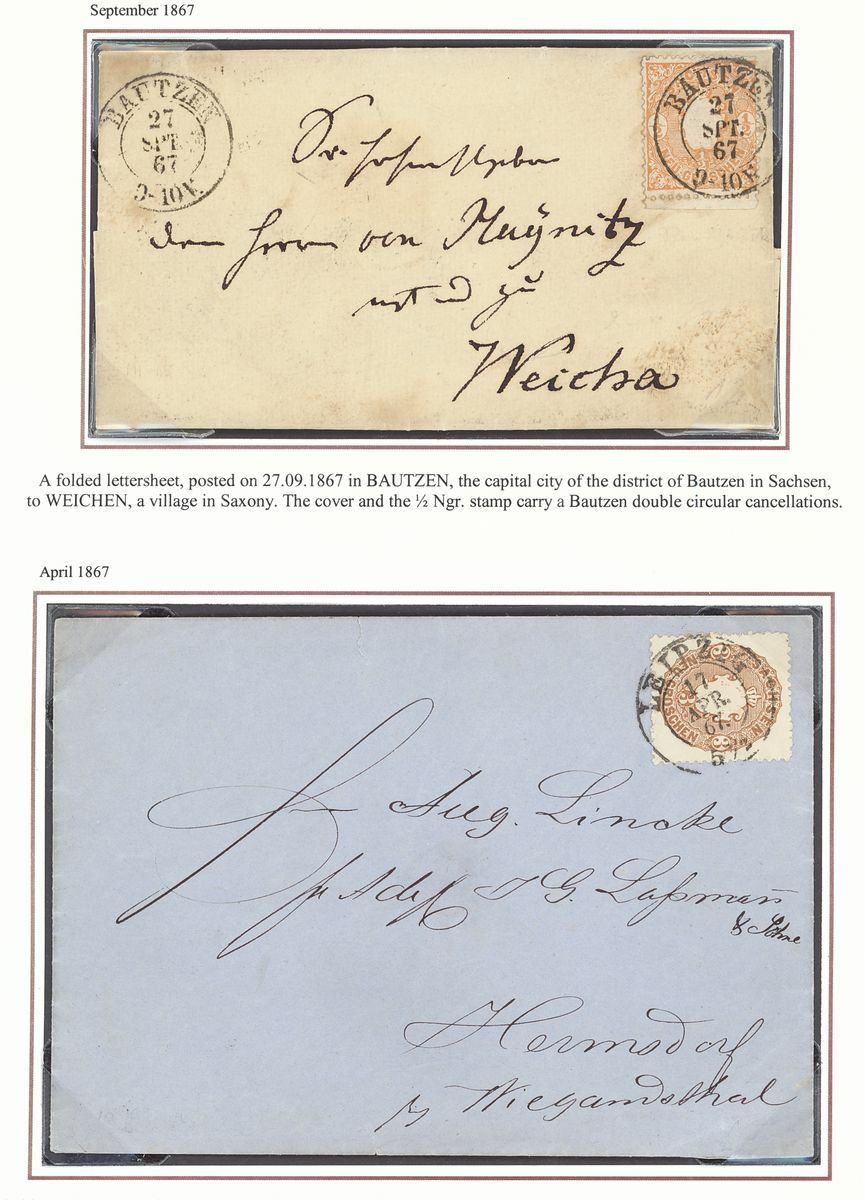 September 1867
BAUTZEN
27
SPT.
67
9-10V.
BAUTZEN
27
SPT.
67
9-10V.
Sr. Hochwohlgeboren
dem Herrn von Maÿnitz
zu
Weicha
A folded lettersheet, posted on 27.09.1867 in BAUTZEN, the capital city of the district of Bautzen in Sachsen,
to WEICHEN, a village in Saxony. The cover and the ½ Ngr. stamp carry a Bautzen double circular cancellations.
April 1867
LEIPZIG
17
APR.
67.
5½
SACHSEN
3
Aug. Lincke
pr Adr. J G. Laßmann
& Söhne
Hermsdorf
Wiegandsthal